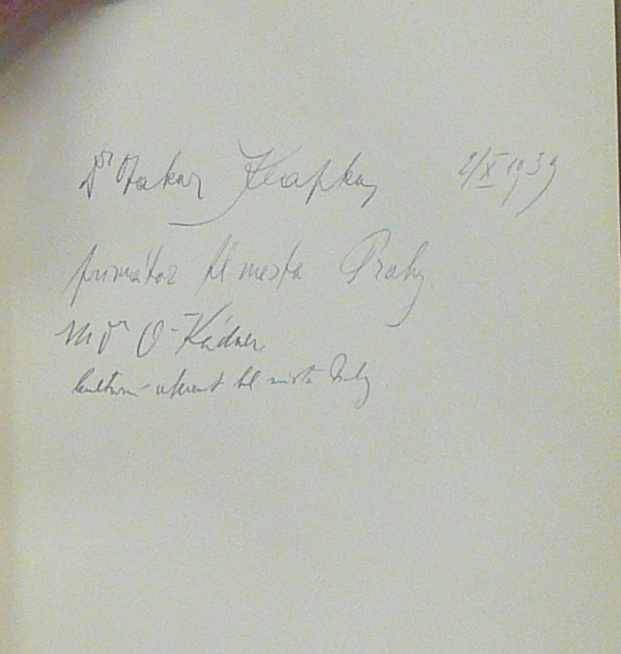 Dr Otakar Klapka 2/X 1939
primátor hl města Prahy
MDr O. Kádner
kulturní referent hl. města Prahy